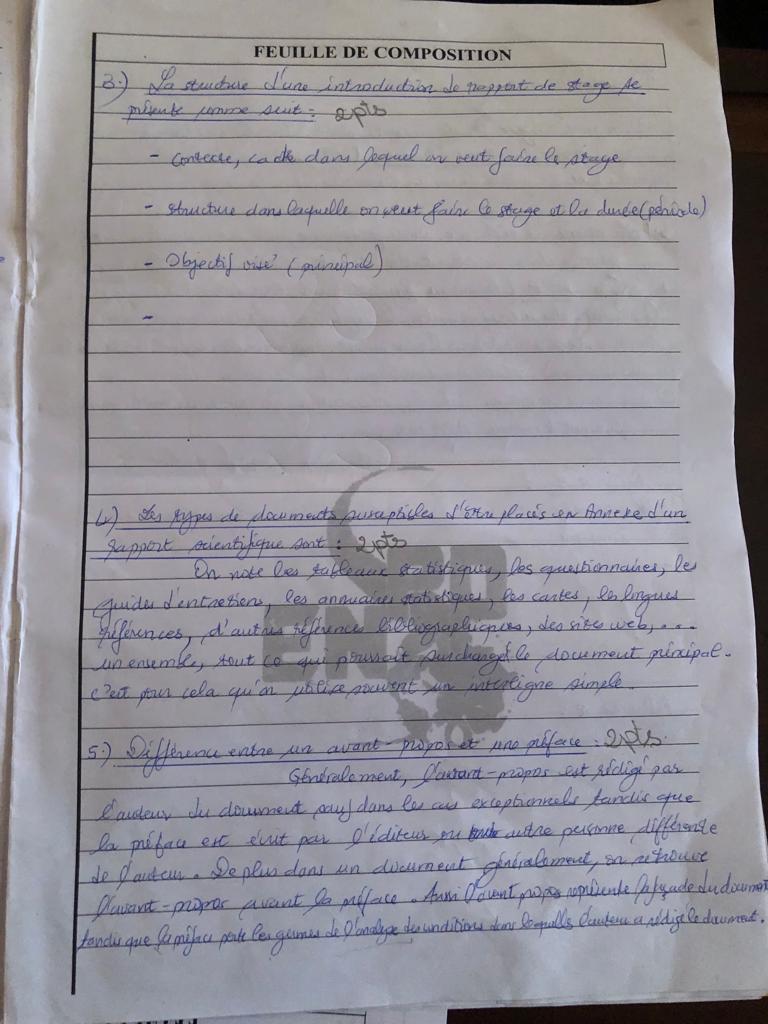 FEUILLE DE COMPOSITION
3.) La structure d'une introduction de rapport de stage se
présente comme suit : 2pts
- contexte, cadre dans lequel on veut faire le stage
- structure dans laquelle on veut faire le stage et la durée (période)
- Objectif visé (principal)
-
4.) Les types de documents susceptibles d'être placés en Annexe d'un
rapport scientifique sont : 2pts
On note les tableaux statistiques, les questionnaires, les
guides d'entretiens, les annuaires statistiques, les cartes, les longues
références, d'autres références bibliographiques, des sites web, ...
un ensemble, tout ce qui pourrait surchargé le document principal.
C'est pour cela qu'on utilise souvent un interligne simple.
5.) Différence entre un avant-propos et une préface : 2pts.
Généralement, l'avant-propos est rédigé par
l'auteur du document sauf dans les cas exceptionnels tandis que
la préface est écrit par l'éditeur ou autre personne différente
de l'auteur. De plus dans un document généralement, on retrouve
l'avant-propos avant la préface. Ainsi l'avant propos représente la façade du document
tandis que la préface porte les germes de l'analyse des conditions dans lesquelles l'auteur a rédigé le document.